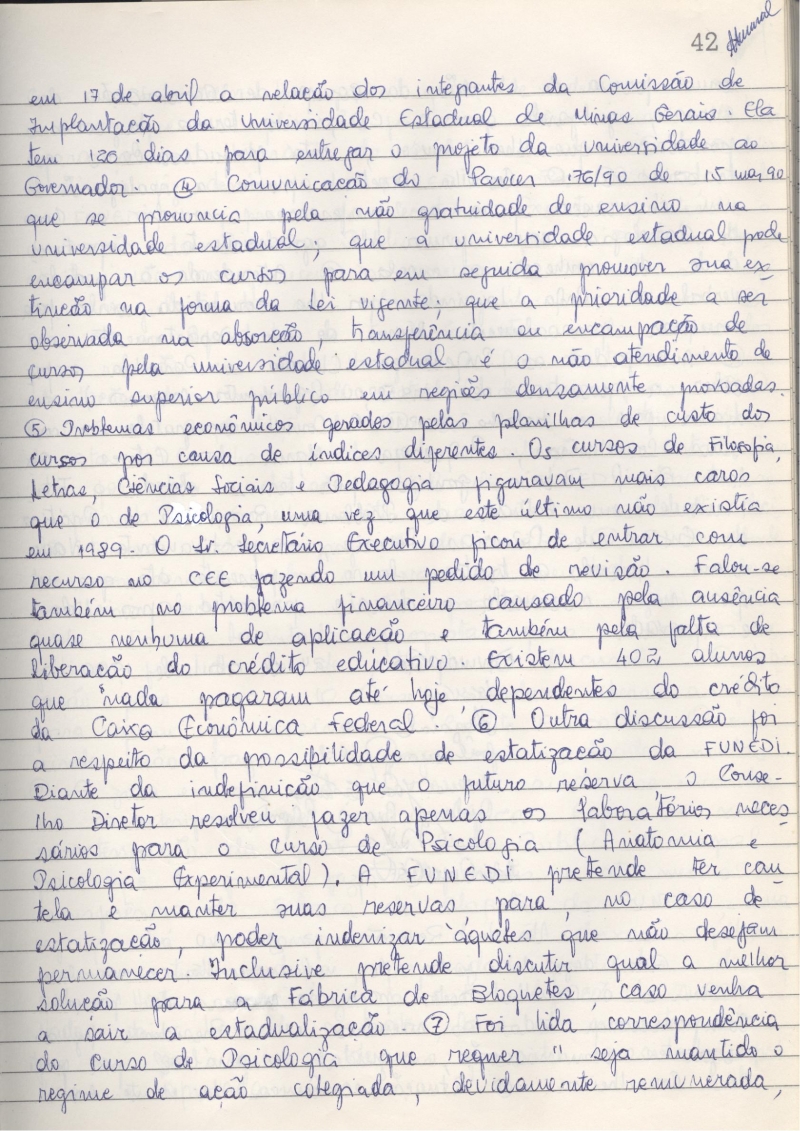 42
em 17 de abril a relação dos integrantes da Comissão de
Implantação da Universidade Estadual de Minas Gerais. Ela
tem 120 dias para entregar o projeto da universidade ao
Governador. ④ Comunicação do Parecer 176/90 de 15 mar, 90
que se pronuncia pela não gratuidade de ensino na
universidade estadual; que a universidade estadual pode
encampar os cursos para em seguida promover sua ex-
tinção na forma da lei vigente; que a prioridade a ser
observada na absorção, transferência ou encampação de
cursos pela universidade estadual é o não atendimento de
ensino superior público em regiões densamente povoadas.
⑤ Problemas econômicos gerados pelas planilhas de custo dos
cursos por causa de índices diferentes. Os cursos de Filosofia,
Letras, Ciências Sociais e Pedagogia figuravam mais caros
que o de Psicologia, uma vez que este último não existia
em 1989. O Sr. Secretário Executivo ficou de entrar com
recurso no CEE fazendo um pedido de revisão. Falou-se
também no problema financeiro causado pela ausência
quase nenhuma de aplicação e também pela falta de
liberação do crédito educativo. Existem 402 alunos
que nada pagaram até hoje, dependentes do crédito
da Caixa Econômica Federal. ⑥ Outra discussão foi
a respeito da possibilidade de estatização da FUNEDI.
Diante da indefinição que o futuro reserva, o Conse-
lho Diretor resolveu fazer apenas os laboratórios neces
sários para o Curso de Psicologia (Anatomia e
Psicologia Experimental). A FUNEDI pretende ter cau
tela e manter suas reservas para, no caso de
estatização, poder indenizar àqueles que não desejam
permanecer. Inclusive pretende discutir qual a melhor
solução para a Fábrica de Bloquetes, caso venha
a sair a estadualização. ⑦ Foi lida correspondência
do Curso de Psicologia que requer "seja mantido o
regime de ação colegiada, devidamente remunerada,